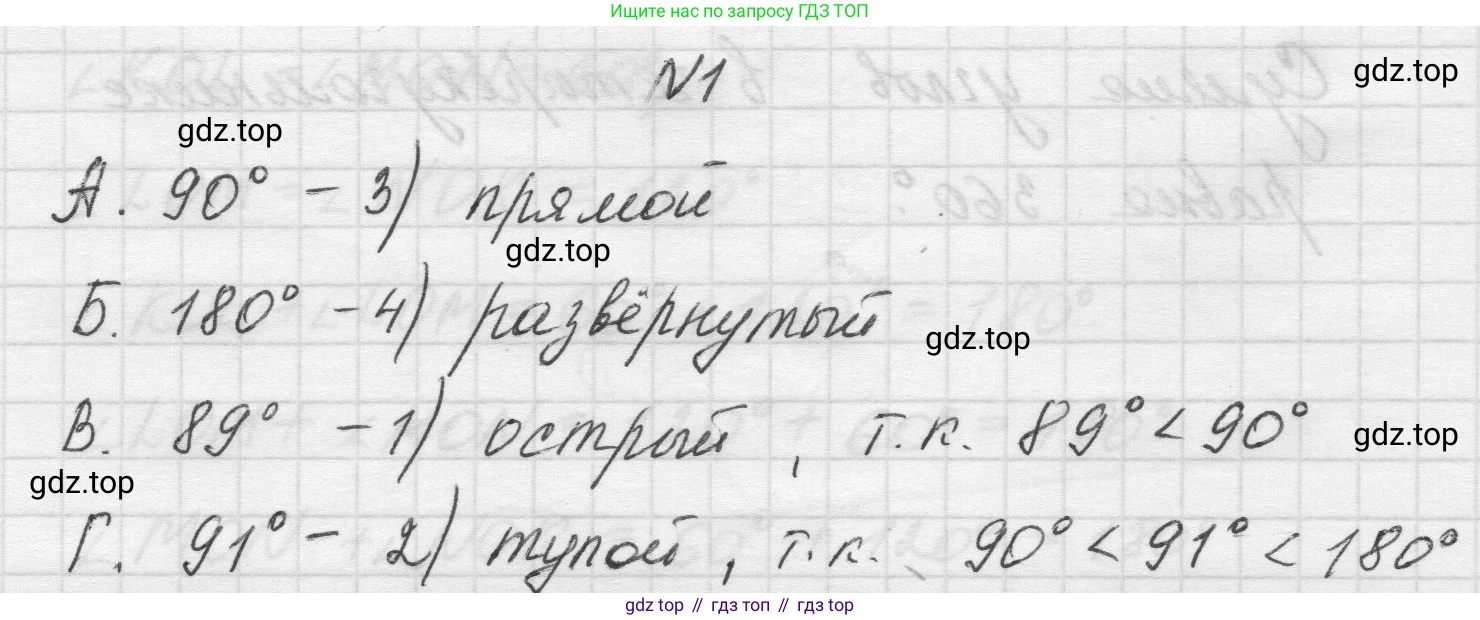 Ищите нас по запросу ГДЗ ТОП
№1
gdz.top
gdz.top
А. 90° – 3) прямой
gdz.top
Б. 180° – 4) развёрнутый
gdz.top
В. 89° – 1) острый, т.к. 89° < 90°
gdz.top
gdz.top
Г. 91° – 2) тупой, т.к. 90° < 91° < 180°
gdz top // гдз топ // гдз top